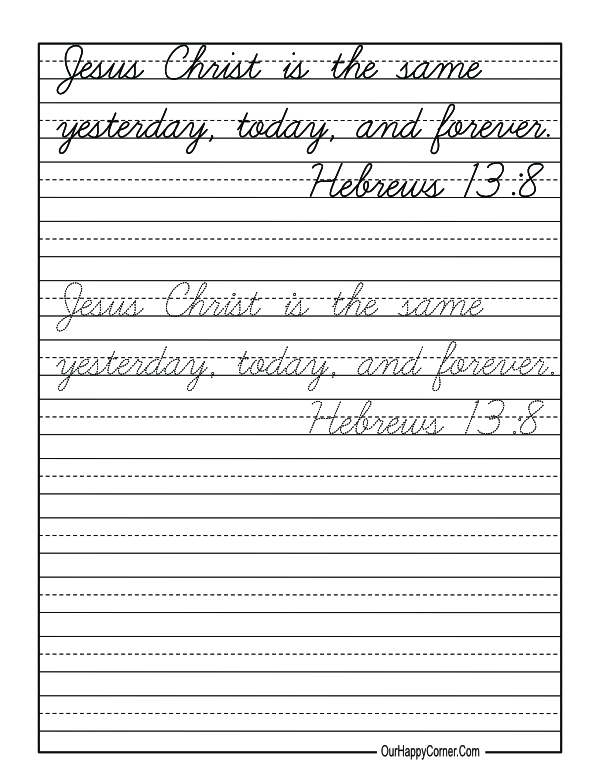 Jesus Christ is the same
yesterday, today, and forever.
Hebrews 13:8
Jesus Christ is the same
yesterday, today, and forever.
Hebrews 13:8
OurHappyCorner.Com